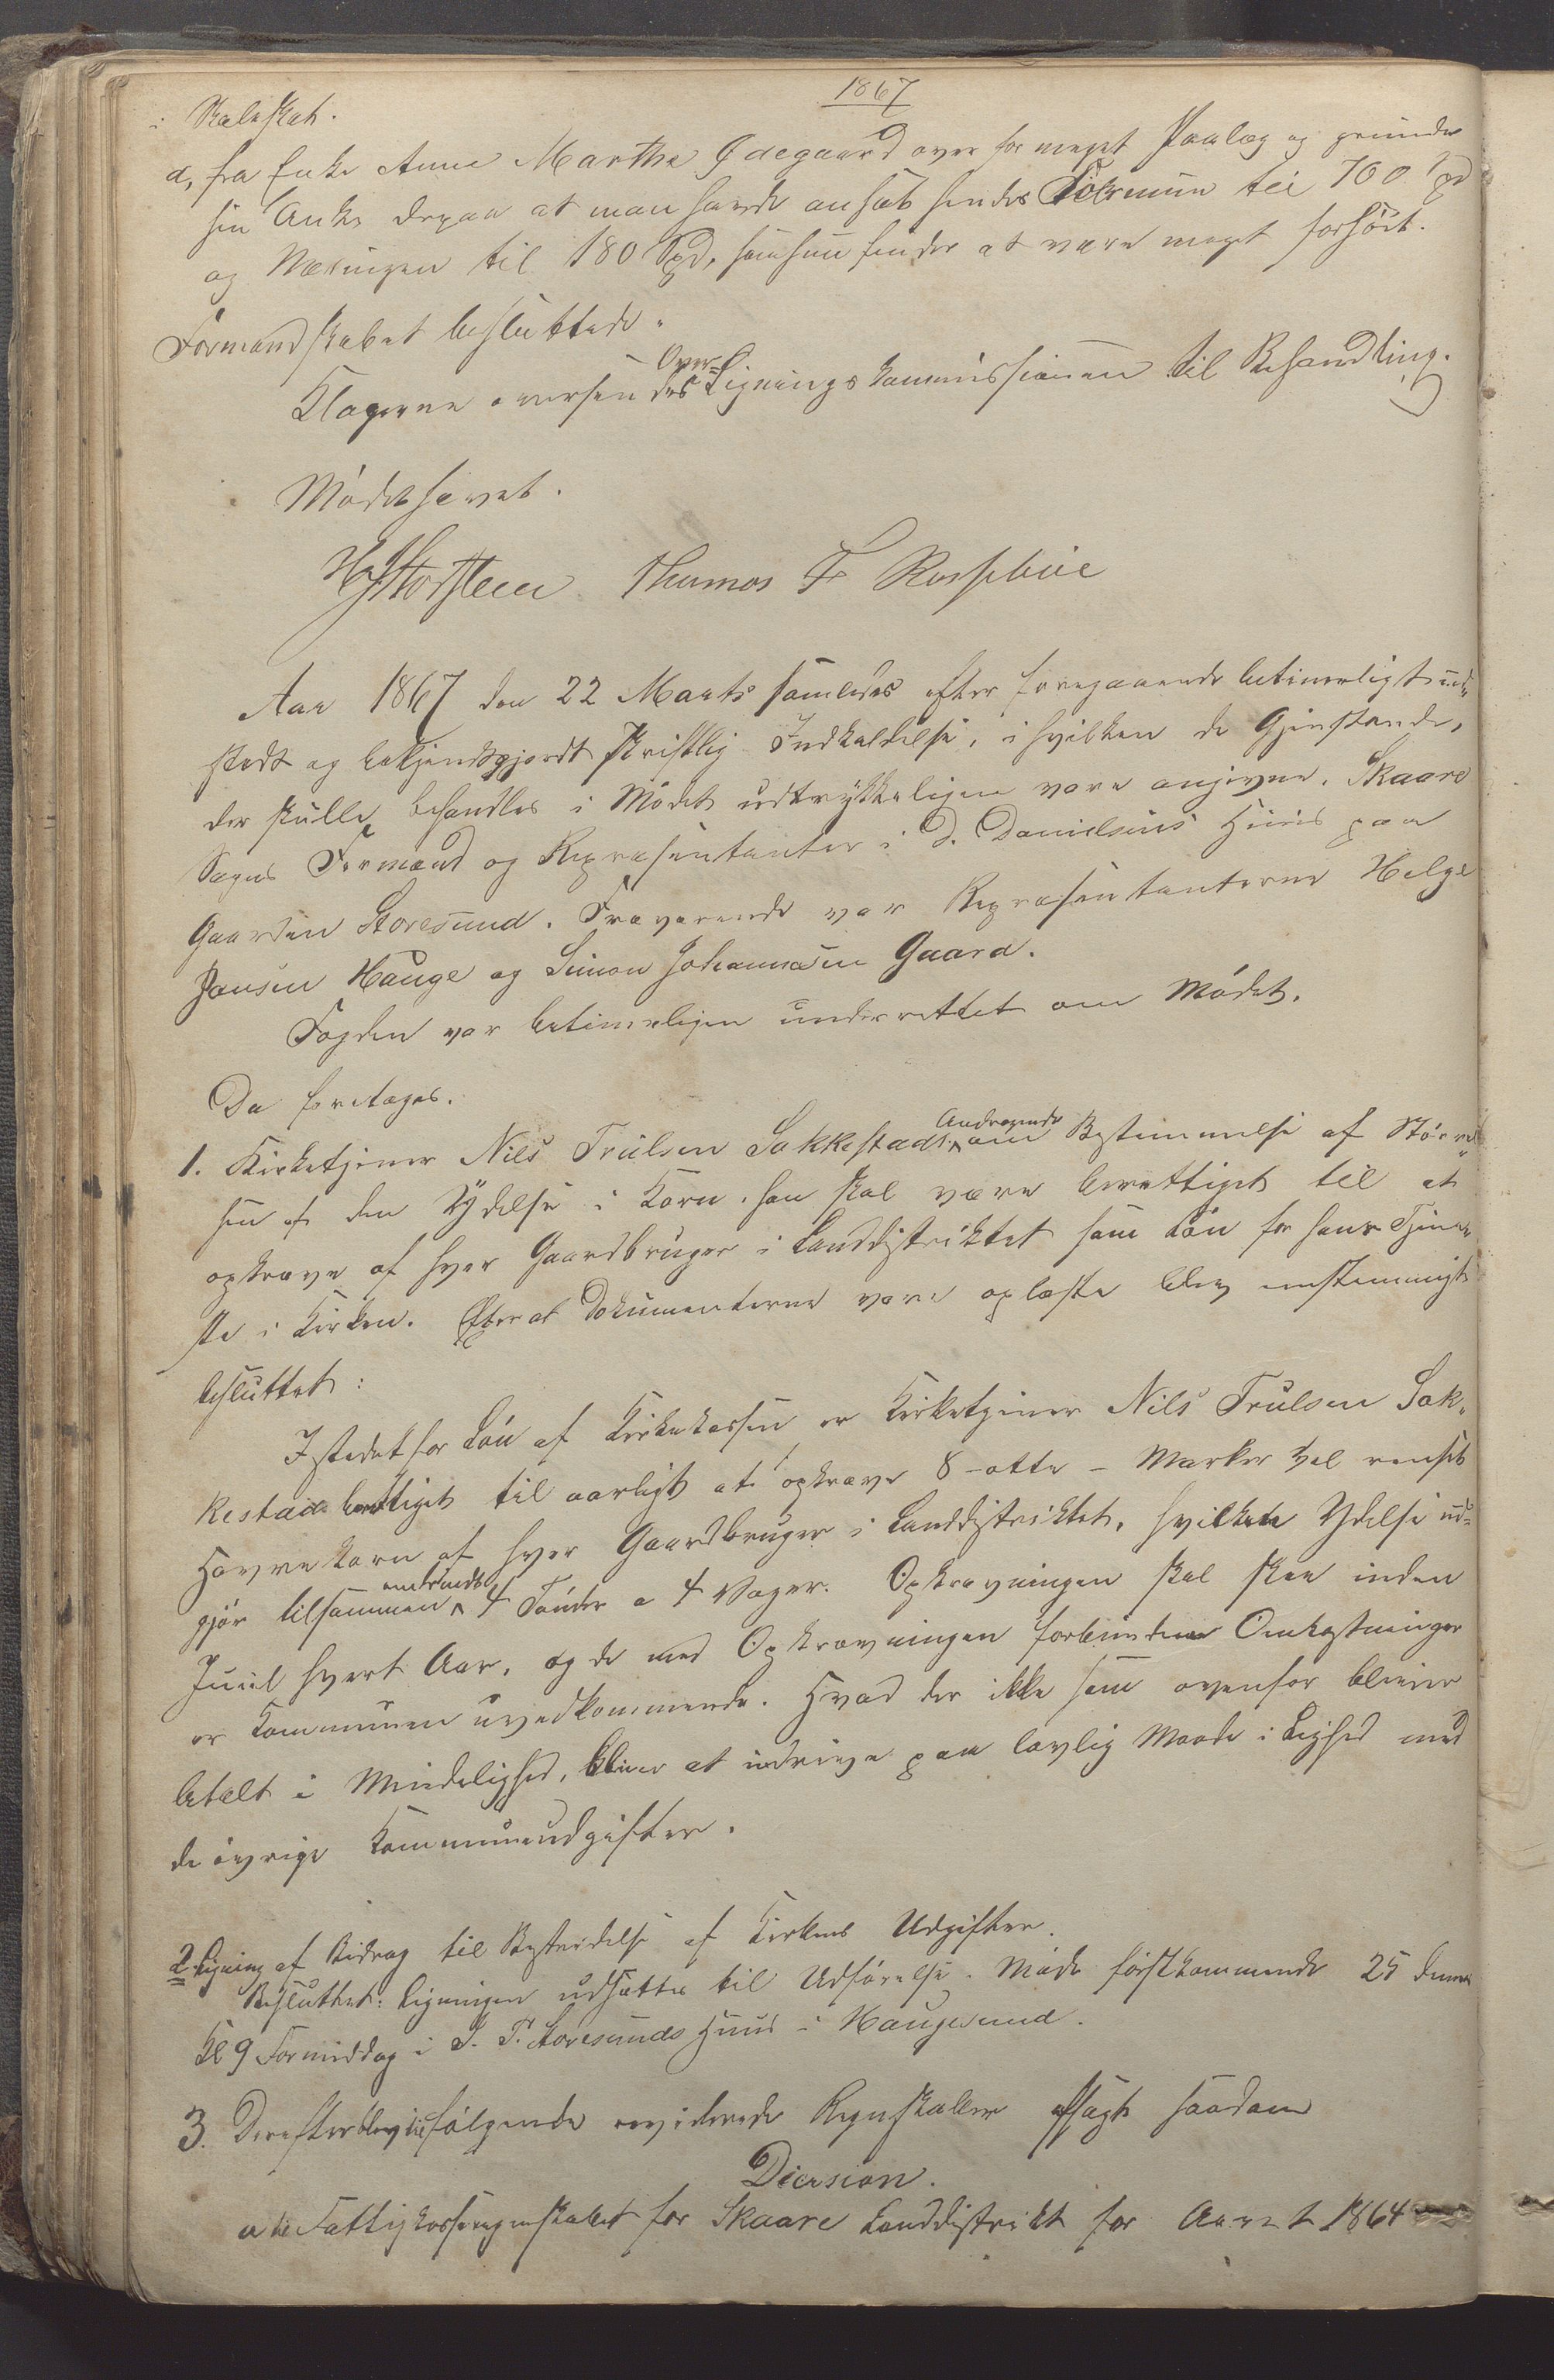 1867
i Skoleskat.
d, fra Enke Anne Marthe Ødegaard over for meget Paalæg og grunder
sin Anke derpaa at man havde ansat hendes Formue til 700 Spd
og Næringen til 180 Spd, som hun finder at være meget forhøit.
Formandskabet besluttede.
Klagerne oversendes Over-Ligningskommissionen til Behandling.
Mødet hævet.
Thomas T Rossebøe
Aar 1867 den 22 Marts samledes efter foregaaende betimeligt ud-
stedt og bekjendtgjordt skriftlig Indkaldelse, i hvilken de Gjenstande,
der skulle behandles i Mødet udtrykkeligen vare angivne. Skaare
Sogns Formænd og Repræsentanter i D. Danielsens Huus paa
Gaarden Storesund. Fraværende var Repræsentanterne Helge
Jansen Hauge og Simon Johannesen Gaard.
Fogden var betimeligen underrettet om Mødet.
Da foretages.
1. Kirketjener Nils Trulsen Sakkestads Andragende om Bestemmelse af Større-
sen af den Ydelse i Korn han skal være berettiget til at
opkræve af hver Gaardbruger i Landdistriktet som Løn for hans Tjene-
ste i Kirken. Efterat Dokumenterne vare oplæste blev enstemmigt
besluttet:
Istedetfor Løn af Kirkekassen er Kirketjener Nils Trulsen Sak-
kestad berettiget til aarligt at opkræve 8 - otte - Marker vel renset
Havrekorn af hver Gaardbruger i Landdistriktet, hvilken Ydelse ud-
gjør tilsammen omtrendt 4 Tønder a 4 Voger. Opkrævningen skal skee inden
Juul hvert Aar, og de med Opkrævningen forbundne Omkostninger
er Kommunen uvedkommende. Hvad der ikke som ovenfor bliver
betalt i Mindelighed, bliver at inddrive paa lovlig Maade i Lighed med
de øvrige Kommuneudgifter.
2. Ligning af Bidrag til Bestridelse af Kirkens Udgifter.
Besluttet: Ligningen udsættes til Udførelse i Møde førstkommende 25 dennes
Kl 9 Formiddag i S. T. Storesunds Huus i Haugesund.
3. Derefter blev til følgende reviderede Regnskaber afsagt saadan
Decision.
a til Fattigkasseregnskabet for Skaare Landdistrikt for Aaret 1864